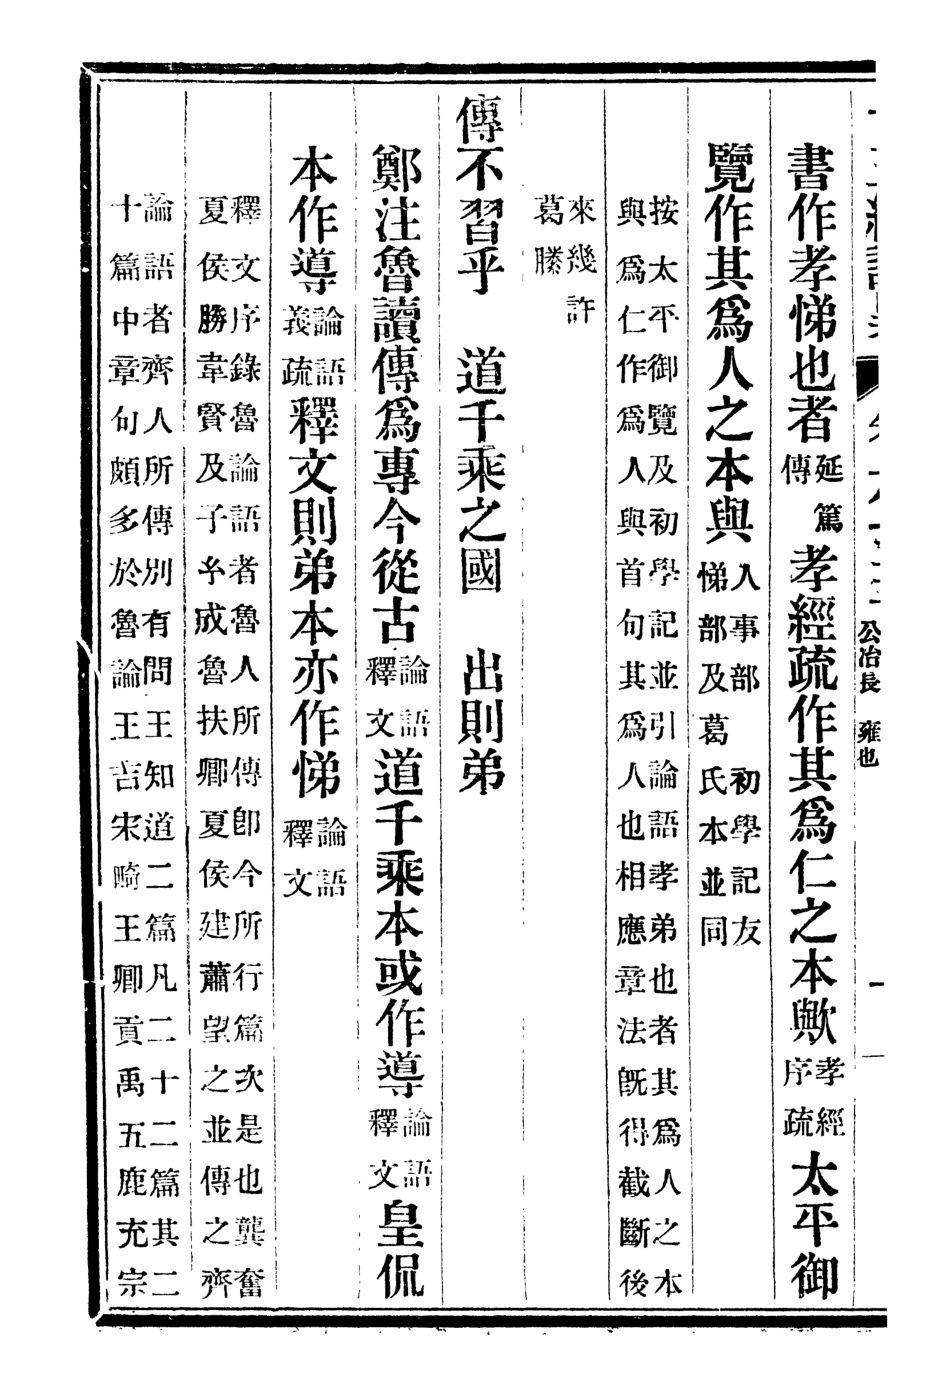 公冶長　雍也
書作孝悌也者延篤傳孝經疏作其爲仁之本歟孝經序疏太平御
覽作其爲人之本與人事部　初學記友悌部及葛氏本並同
按太平御覽及初學記並引論語孝弟也者其爲人之本
與爲仁作爲人與首句其爲人也相應章法旣得截斷後
來幾許
葛藤
傳不習乎　道千乘之國　出則弟
鄭注魯讀傳爲專今從古論語釋文道千乘本或作導論語釋文皇侃
本作導論語義疏釋文則弟本亦作悌論語釋文
釋文序錄魯論語者魯人所傳卽今所行篇次是也龔奮
夏侯勝韋賢及子玄成魯扶卿夏侯建蕭望之並傳之齊
論語者齊人所傳別有問王知道二篇凡二十二篇其二
十篇中章句頗多於魯論王吉宋畸王卿貢禹五鹿充宗